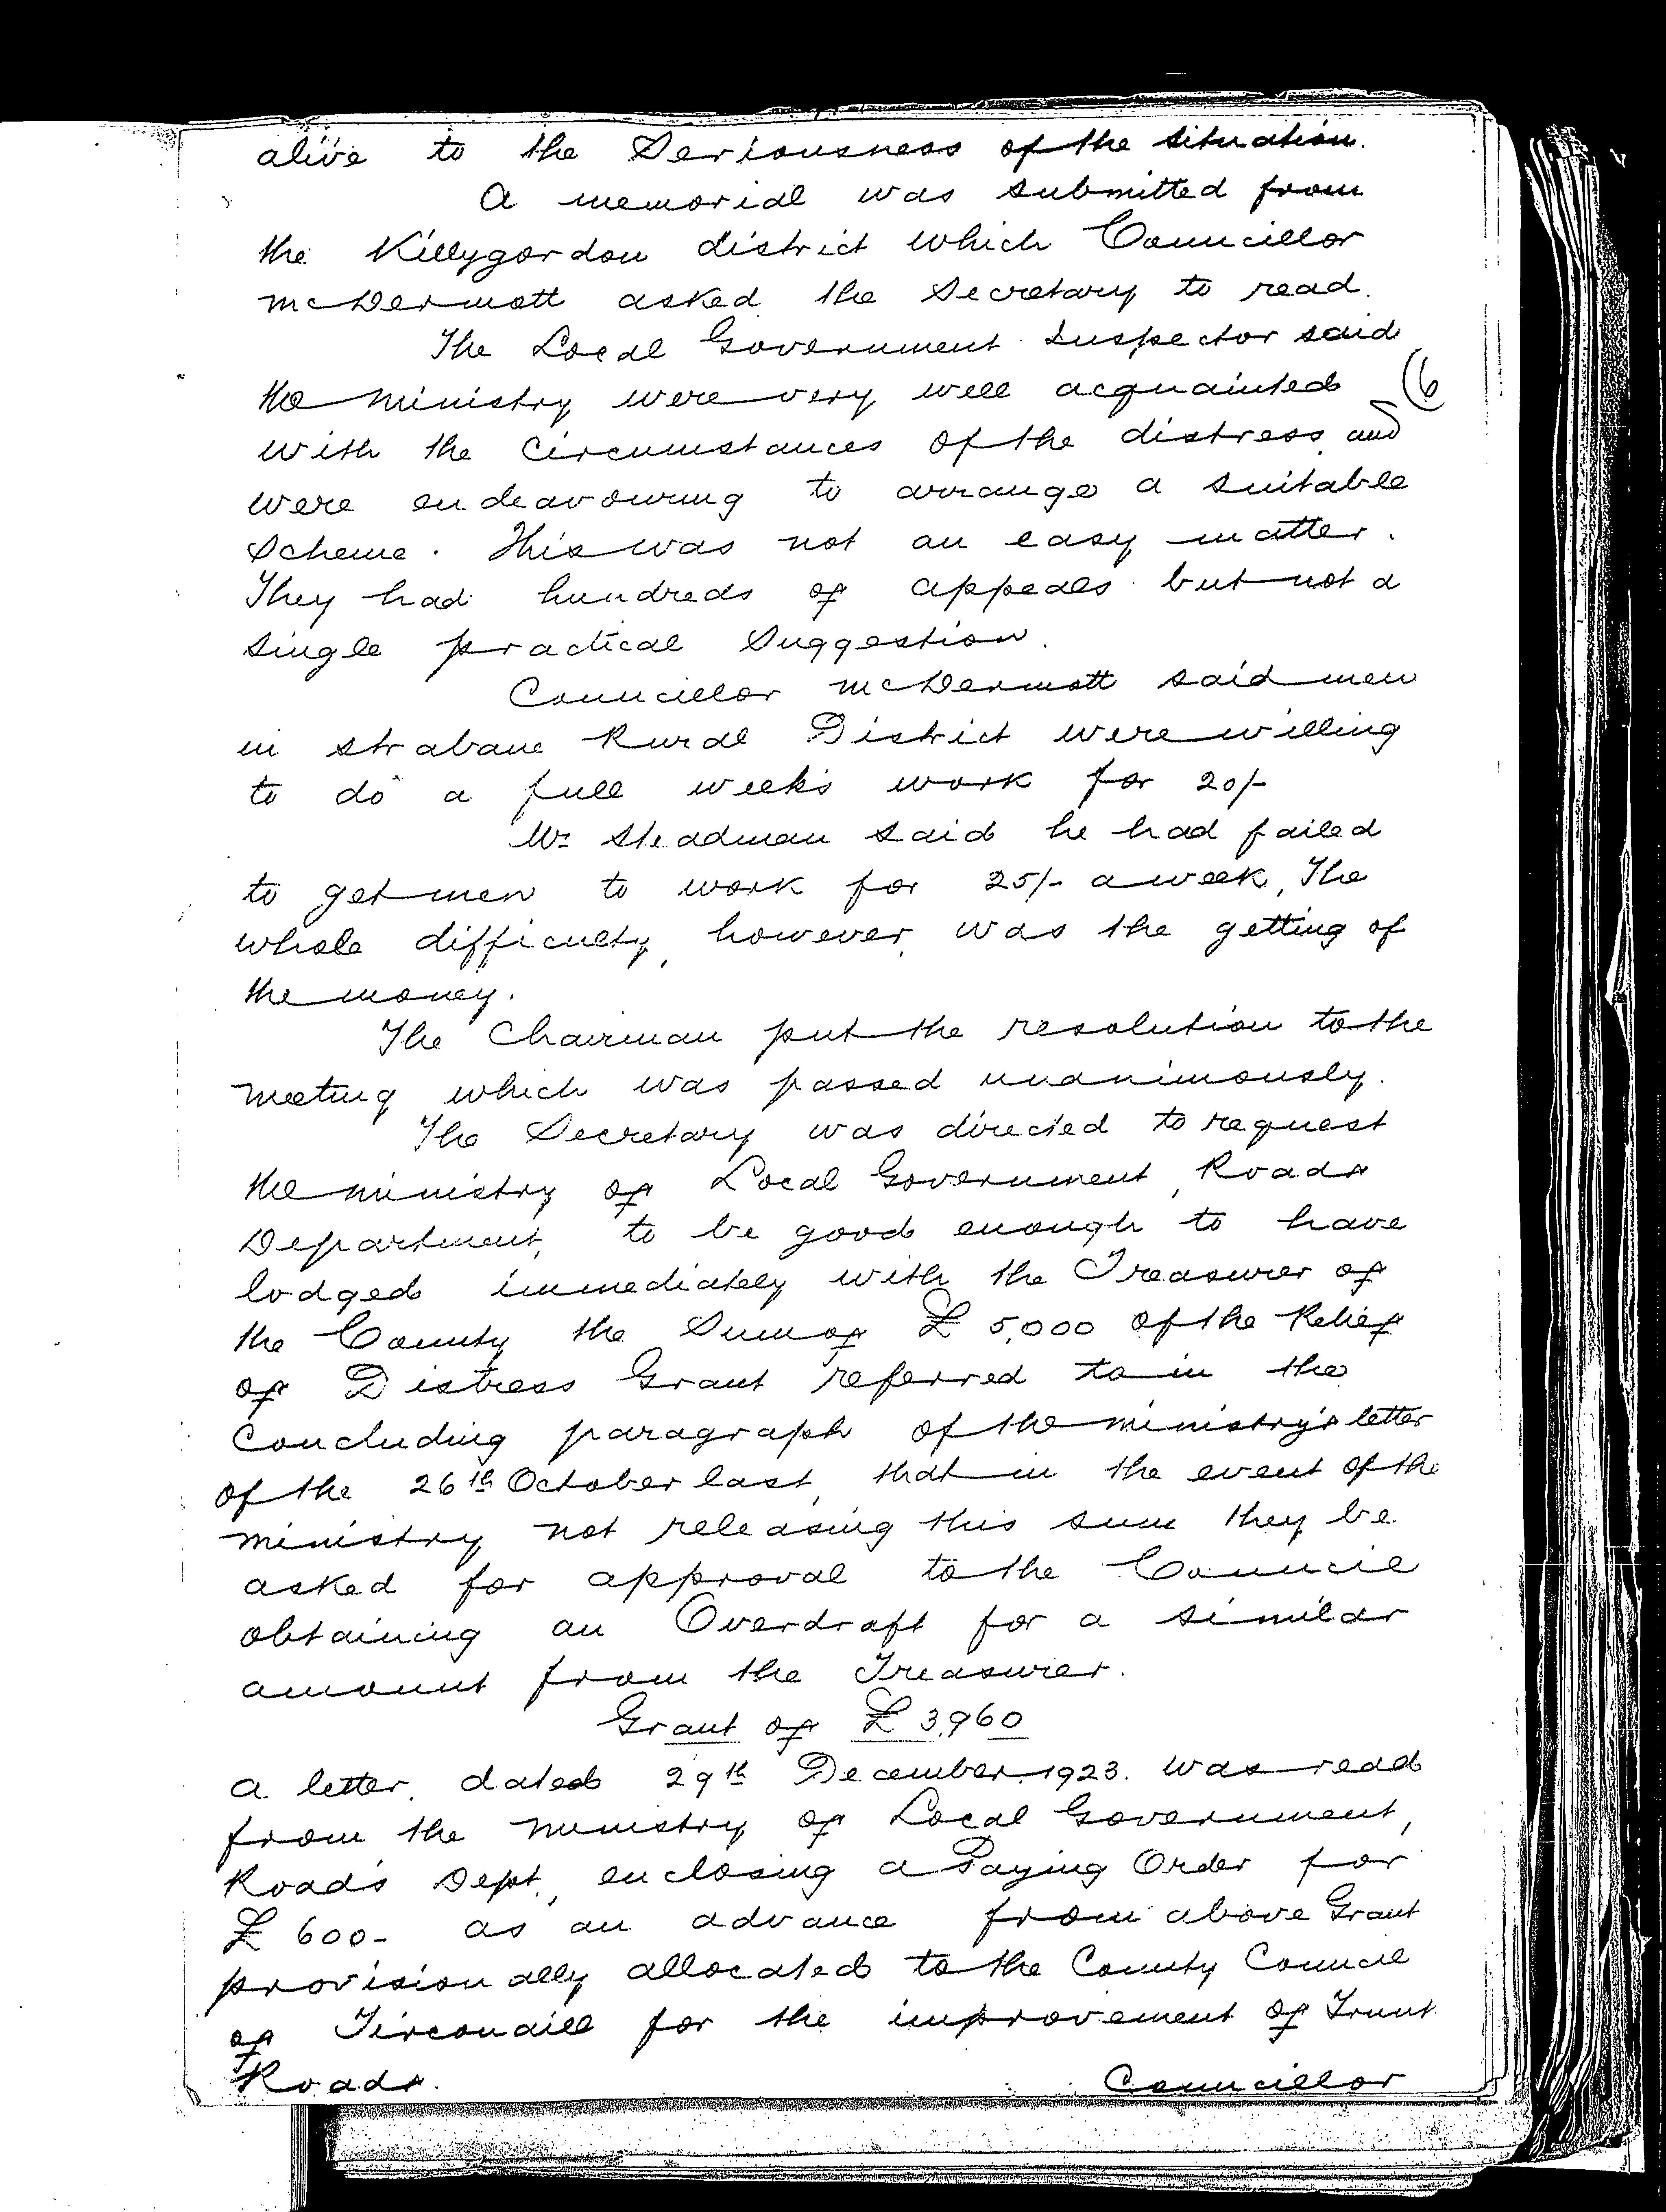 alive to the seriousness of the situation.
A memorial was submitted from
the Killygordon district which Councillor
McDermott asked the Secretary to read.
The Local Government Inspector said
the Ministry were very well acquainted
(6
with the circumstances of the distress and
were endeavouring to arrange a suitable
scheme. This was not an easy matter.
They had hundreds of appeals but not a
single practical suggestion.
Councillor McDermott said men
in Strabane Rural District were willing
to do a full week's work for 20/-
Mr Steadman said he had failed
to get men to work for 25/- a week, The
whole difficulty, however, was the getting of
the money.
The Chairman put the resolution to the
meeting which was passed unanimously.
The Secretary was directed to request
the Ministry of Local Government, Roads
Department, to be good enough to have
lodged immediately with the Treasurer of
the County the sum of £5,000 of the Relief
of Distress Grant referred to in the
concluding paragraph of the Ministry's letter
of the 26th October last, that in the event of the
Ministry not releasing this sum they be
asked for approval to the Council
obtaining an Overdraft for a similar
amount from the Treasurer.
Grant of £3,960
A letter, dated 29th December, 1923. was read
from the Ministry of Local Government,
Roads Dept, enclosing a Paying Order for
£600- as an advance from above Grant
provisionally allocated to the County Council
of Tirconaill for the improvement of Trunk
Roads.
Councillor